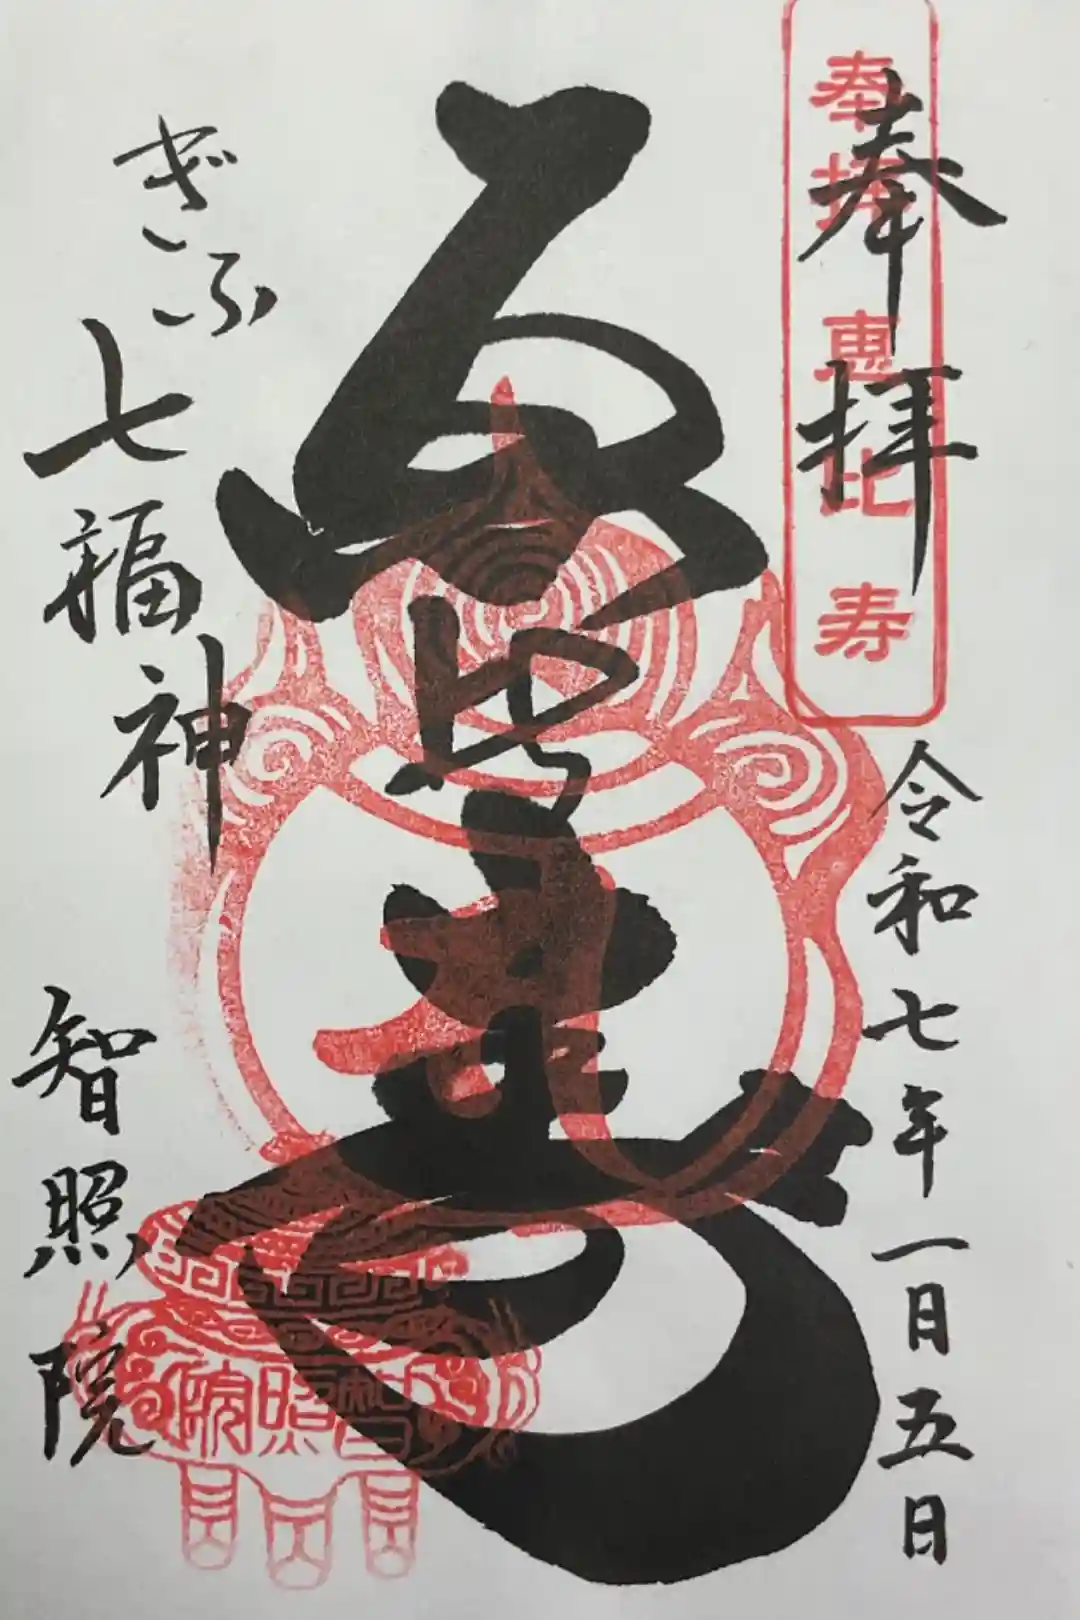 奉拝 恵比寿
奉拝
令和七年一月五日
恵比寿
ぎふ
七福神
智照院
智照院